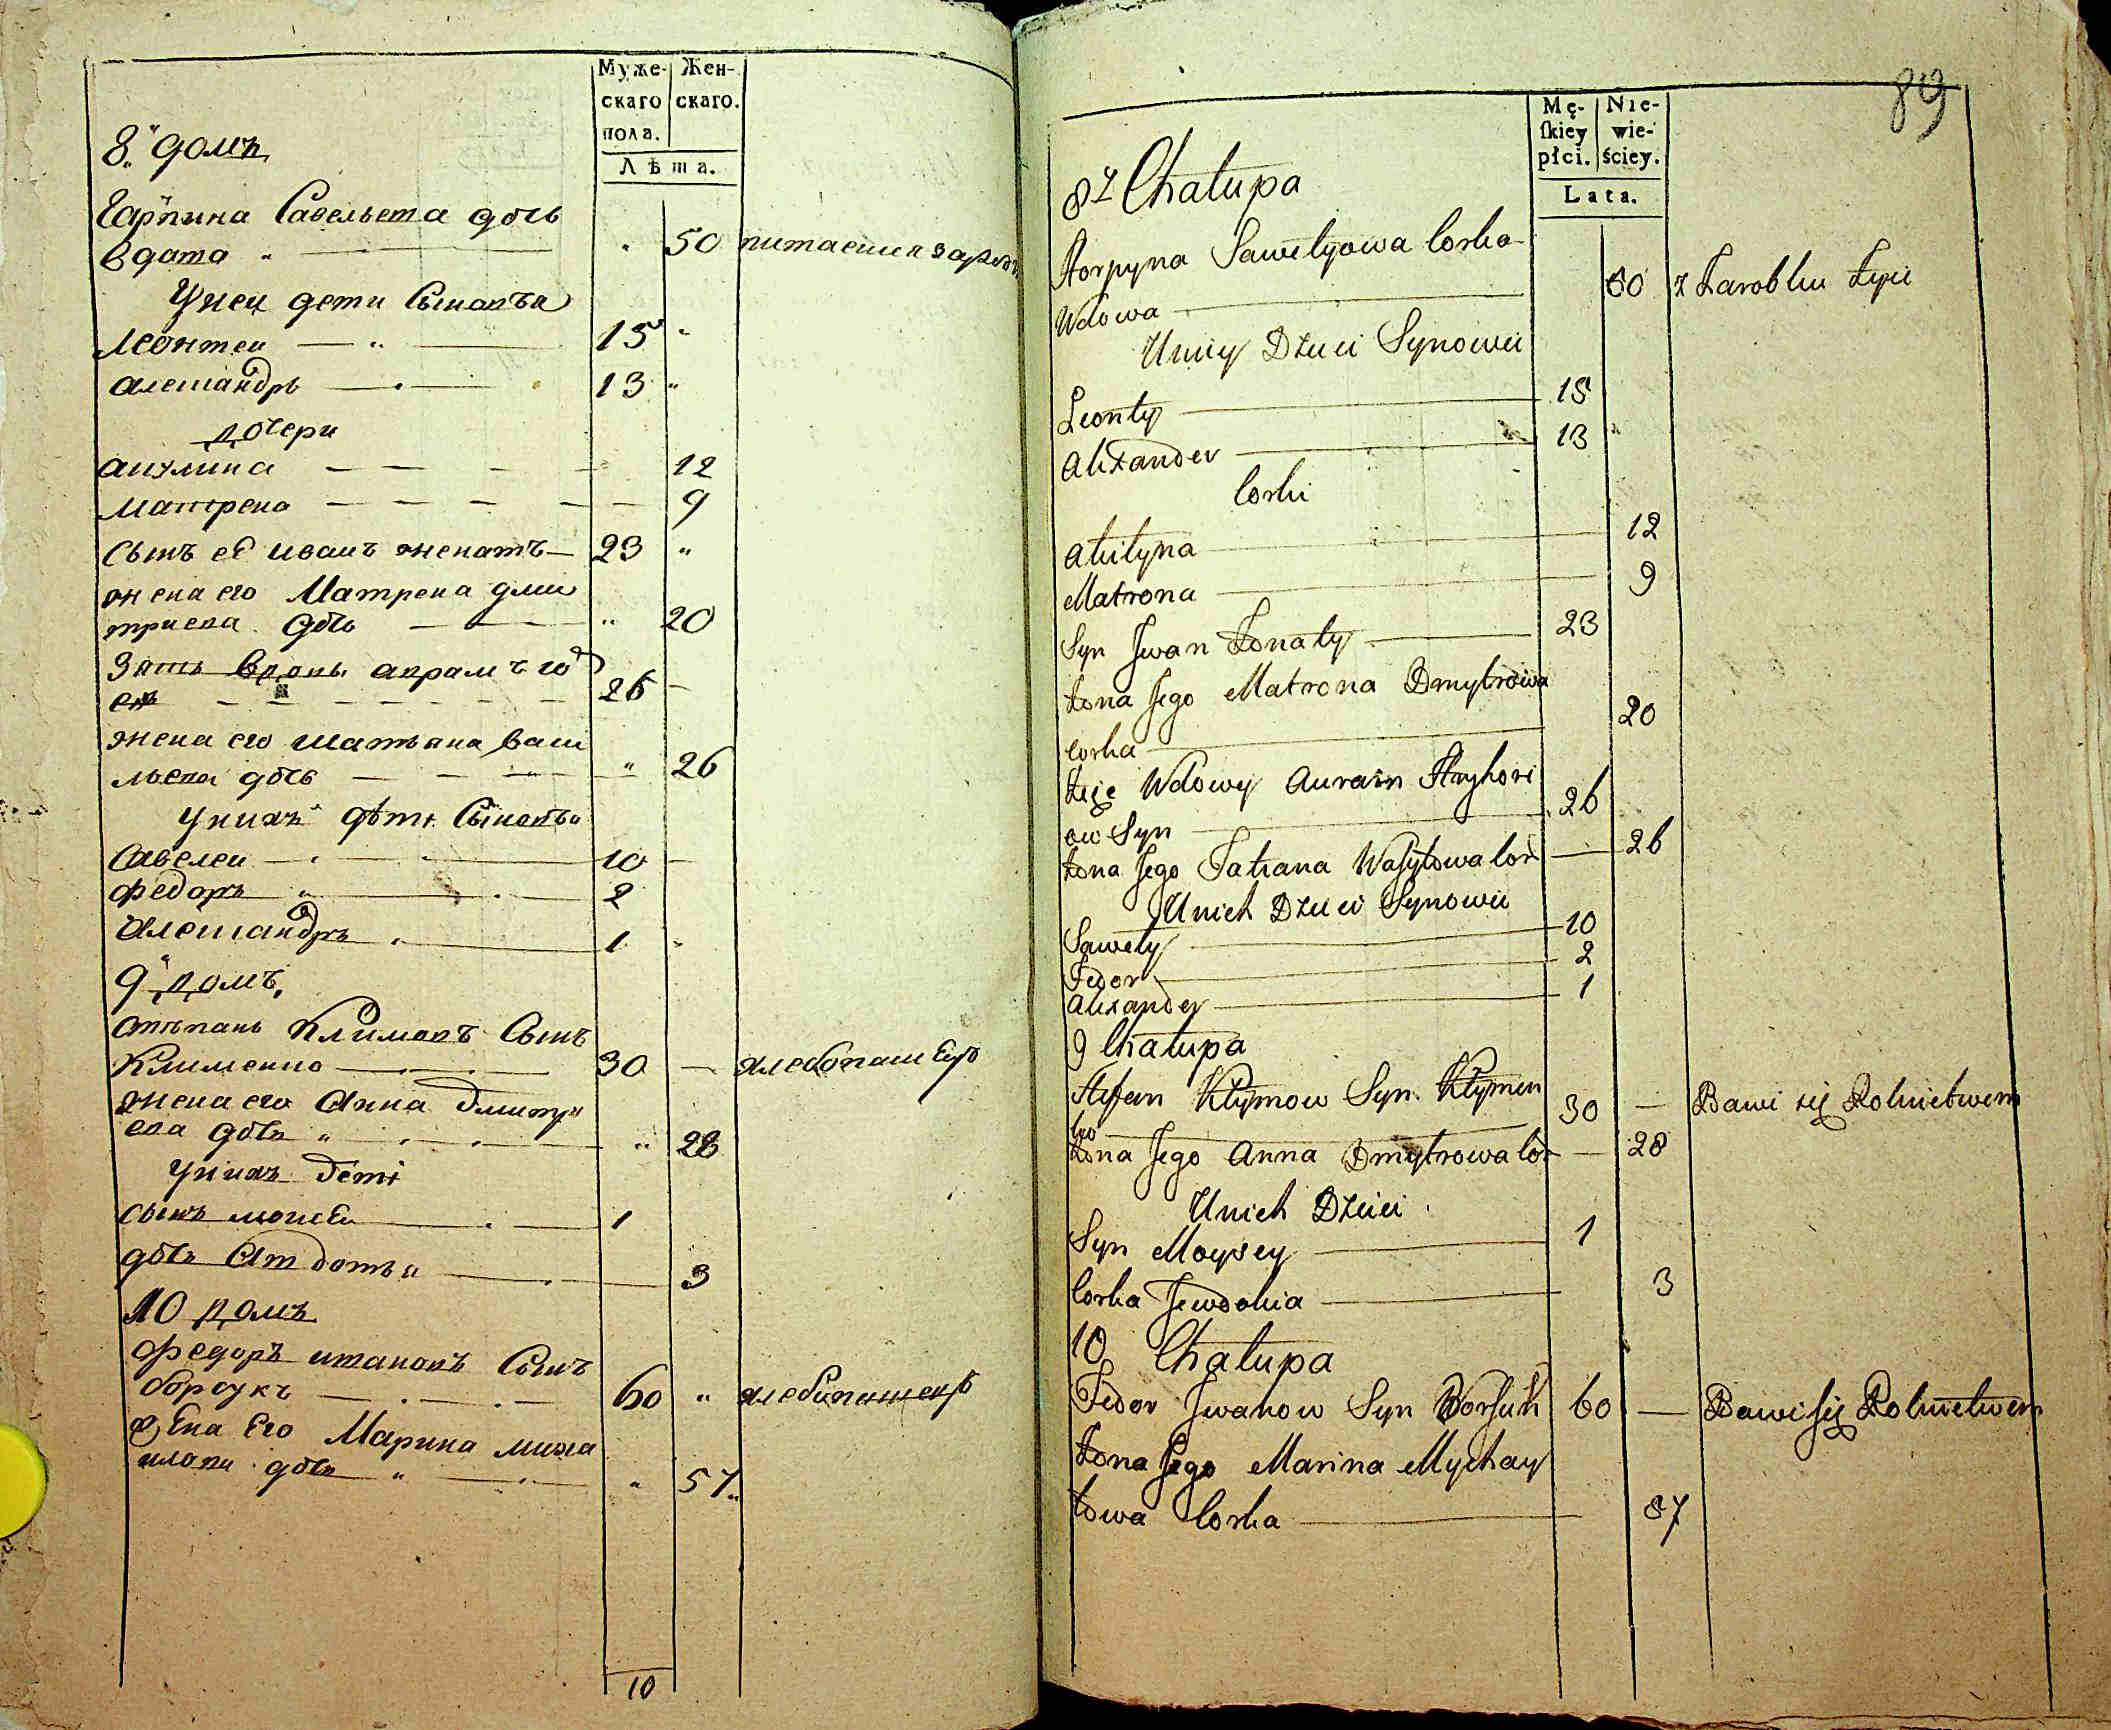 Муже-
скаго
пола.
Жен-
скаго.
Лѣта.
8й домъ
Гарпина Савельева дочь
вдова 50 питаешся зарабо
У ней дети Сыновья
Леонтеи 15
александръ 13
дочери
акулина 12
матрена 9
Сынъ её иванъ женатъ 23
жена его Матрена дми
триева дочь 20
Зять вдовы аврамъ
26
жена его татьяна васи
льева дочь 26
У нихъ дѣти Сыновья
Савелеи 10
федоръ 2
александръ 1
9й домъ
степанъ Климовъ Сынъ
Клименко 30 хлебопашецъ
жена его Анна Дмитри
ева дочь 28
У нихъ дети
сынъ моисеи 1
дочь Авдотья 3
10 домъ
федоръ ивановъ Сынъ
борсукъ 60 хлебопашецъ
жена Его Марина миха
илова дочь 57
10
89
Mę-
ſkiey
płci.
Nie-
wie-
ściey.
Lata.
8 Chałupa
Horpyna Sawelyowa Corka
Wdowa 50 z Zarobku żyie
U niey Dzieci Synowie
Leonty 15
Alexander 13
Corki
Akulyna 12
Matrona 9
Syn Jwan żonaty 23
żona Jego Matrona Dmytrowa
Corka 20
Zięć Wdowy Auram Hryhori
ow Syn 26
żona Jego Tatiana Wasylowa Cor 26
U nich Dzieci Synowie
Sawely 10
Fedor 2
Alexander 1
9 Chałupa
Stefan Kłymow Syn Kłymen
ko 30 — Bawi się Rolnictwem
żona Jego Anna Dmytrowa Cor — 28
U nich Dzieci
Syn Moysey 1
Corka Jewdokia 3
10 Chałupa
Fedor Jwanow Syn Borsuk 60 — Bawi się Rolnictwem
żona Jego Marina Mychay
łowa Corka 57